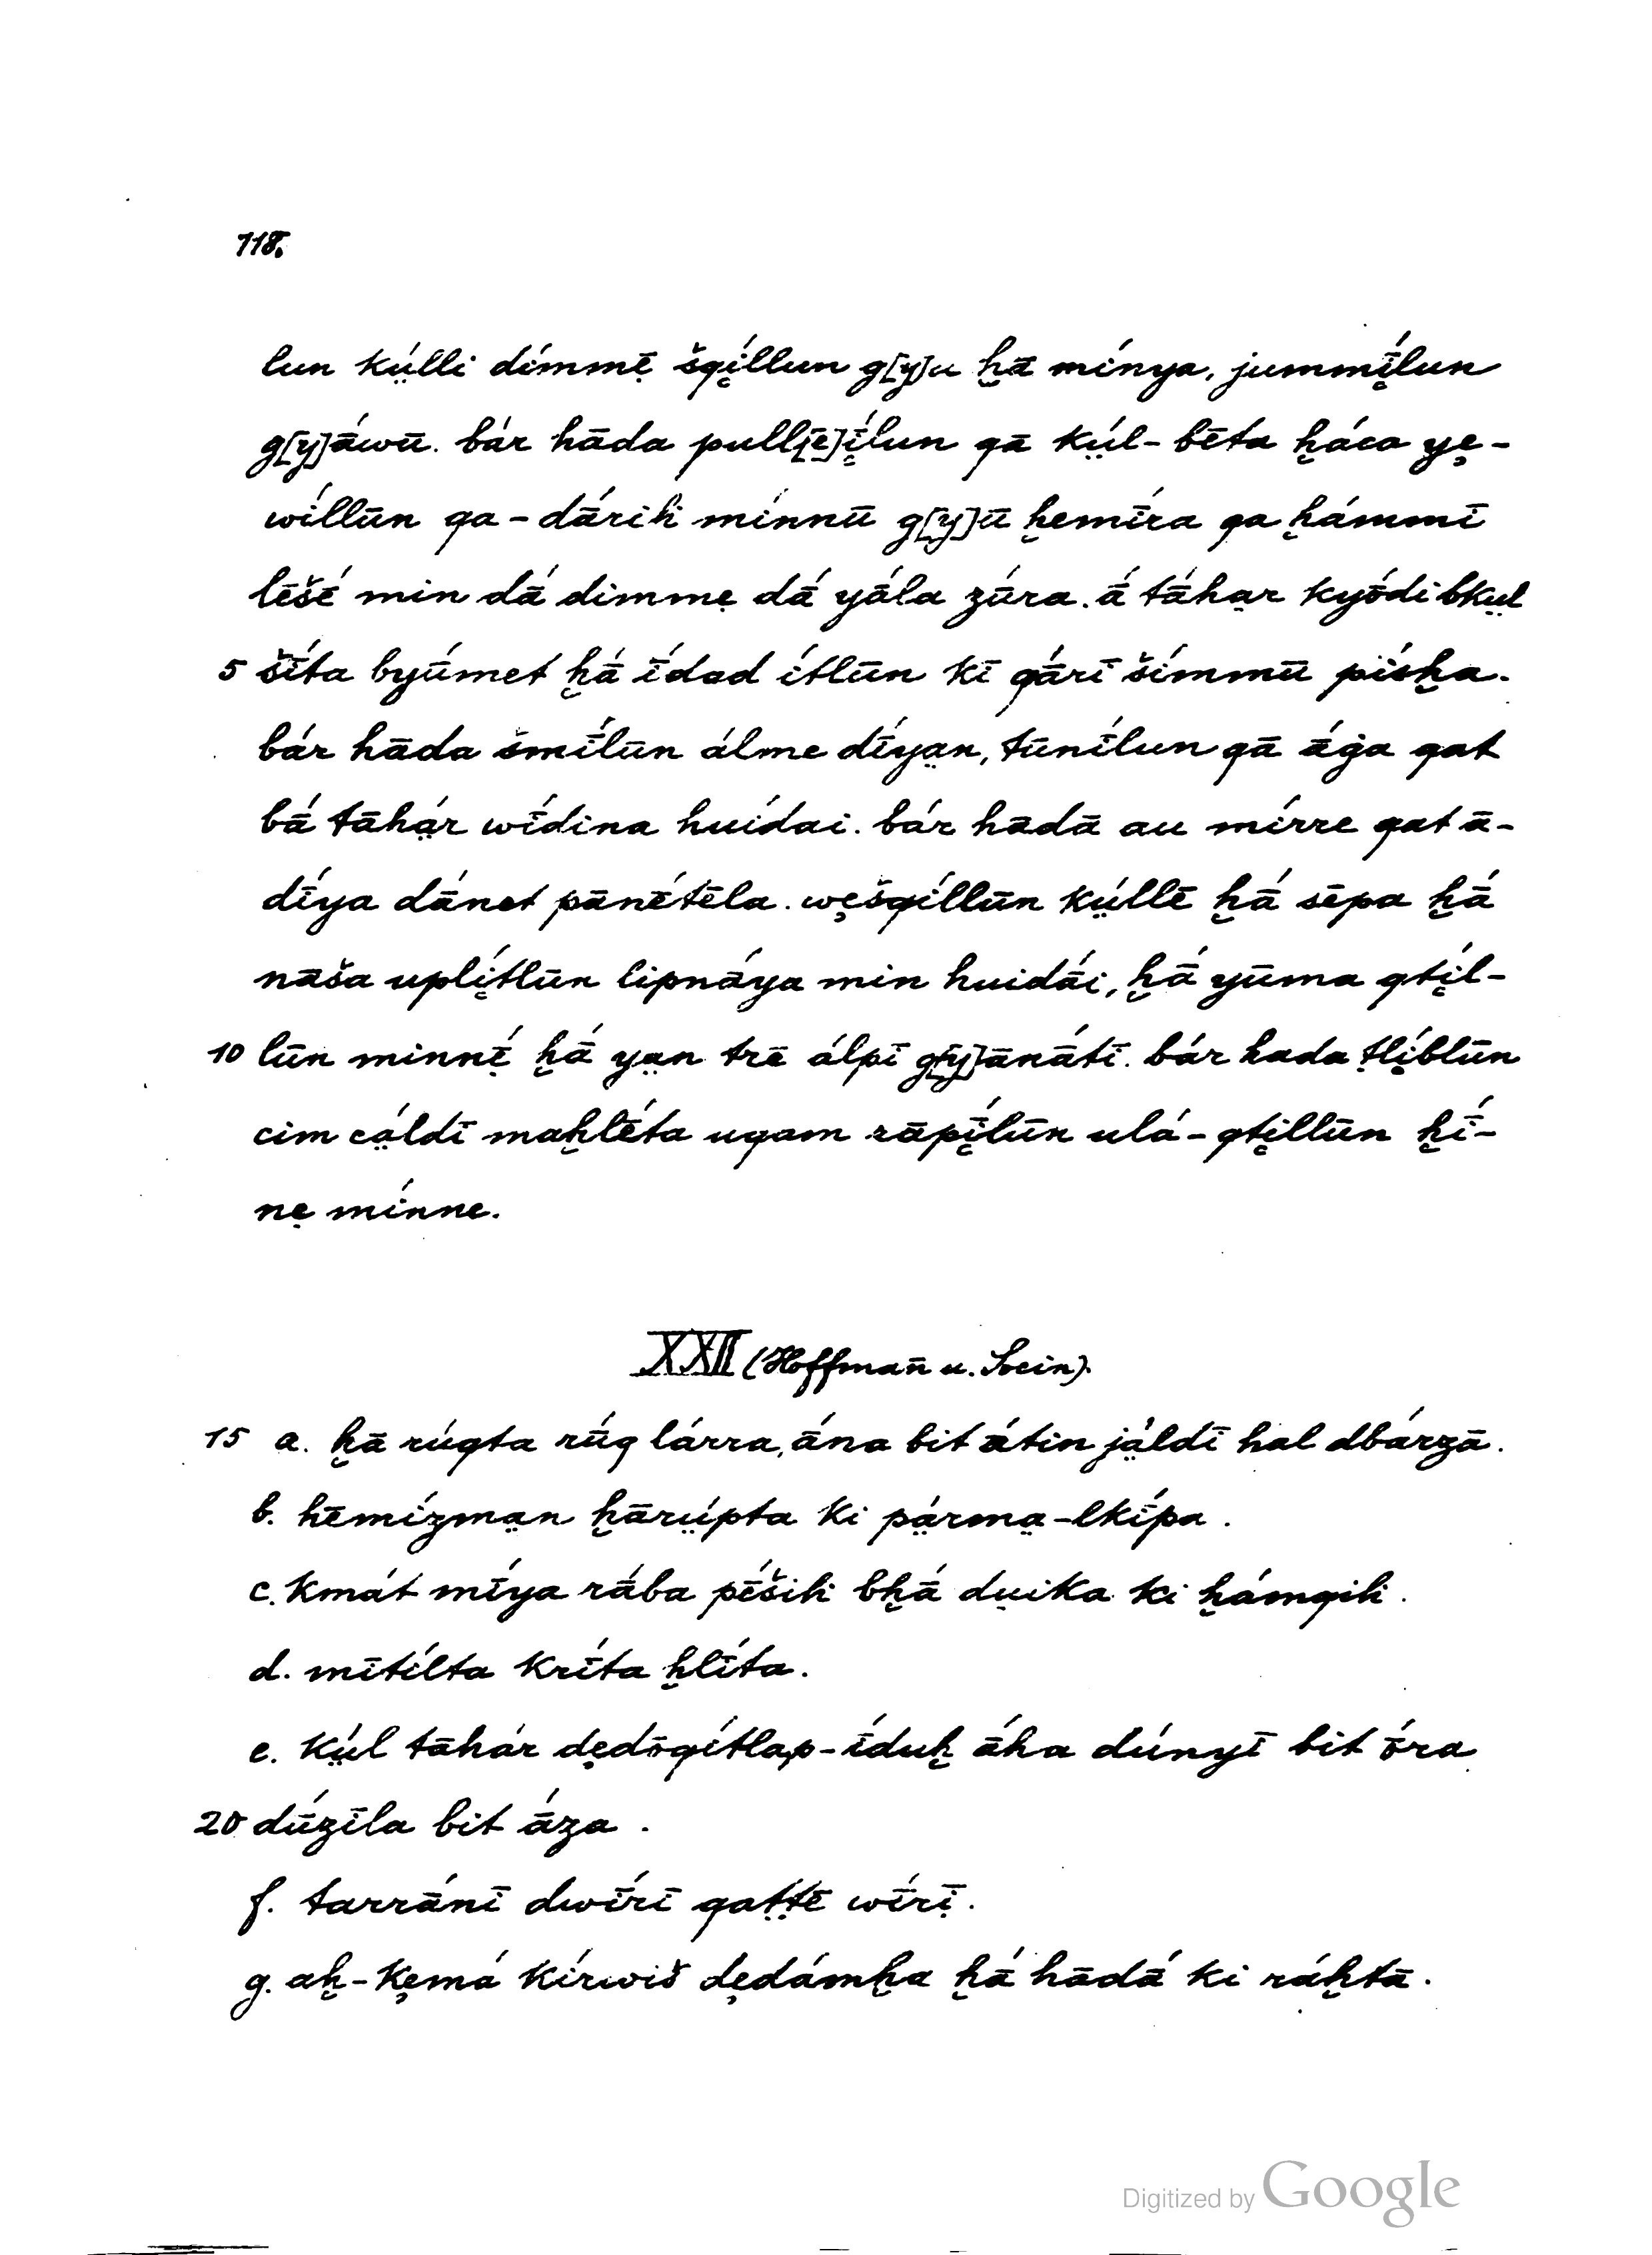 118.
lun kṳ́lli dímmē̤ šqḭ́llun g[y]u ḫā mínya, jummḭ̄́lun
g[y]ā́wū. bár hāda pull[ē]ḭ̄́lun qā kṳ́l-bēta ḫáca ye̤-
wíllūn qa-dā́rih mínnū g[y]ū ḫemī́ra qa ḫámmī
lēšḗ min dā́ dimme̤ dā́ yā́la zū́ra. ā́ tā́ha̤r kyṓdi bkṳl
5 šī́ta byū́met ḫā́ ī́dad ítlūn kī qā́rī šímmū písḫa.
bár hāda šmī́lūn álme dī́ya̤n, tūnī́lun qā ā́ġa qat
bā́ tāhá̤r wī́dina huídai. bár hādā au mírre qat ā-
dī́ya dā́net pānḗtēla. we̤šqíllūn kṳ́llē ḫā́ sēpa ḫā́
nāša uplḭ́tlūn lipnā́ya min huidā́i, ḫā́ yūma qtḭ́l-
10 lūn minnḗ̤ ḫā́ ya̤n trē álpī g[y]ānā́tī. bár hada ṭlḭ́blūn
cim cá̤ldī maḫlḗta uqam rāpḭ̄́lūn ulá-qtḭllūn ḫī́-
ne̤ mínne.
XXII (Hoffmañ u. Socin).
15 a. ḫā rúqta rū́q lárra, ā́na bit ā́tin já̤ldī hal dbárzā.
b. hēmízma̤n ḫārṳ́pta ki pá̤rma̤-lkī́pa.
c. kmát mī́ya rā́ba pḗših bḫā́ dṳika ki ḫámqih.
d. mītílta krī́ta ḫlī́ta.
e. kṳ́l tāhár de̤dōqítlap-ī́duḫ ā́ha dúnyī bit ṓra
20 dū́zīla bit ā́za.
f. tarrā́nī dwī́rī qaṭṭē wī́rī̤.
g. aḫ-ke̤má kírwiš de̤dámḫa ḫā́ hādā́ ki ráḫtā.
Digitized by Google